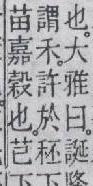 也。大雅曰。誕降
謂禾。許於秠下
苗嘉穀也。芑下